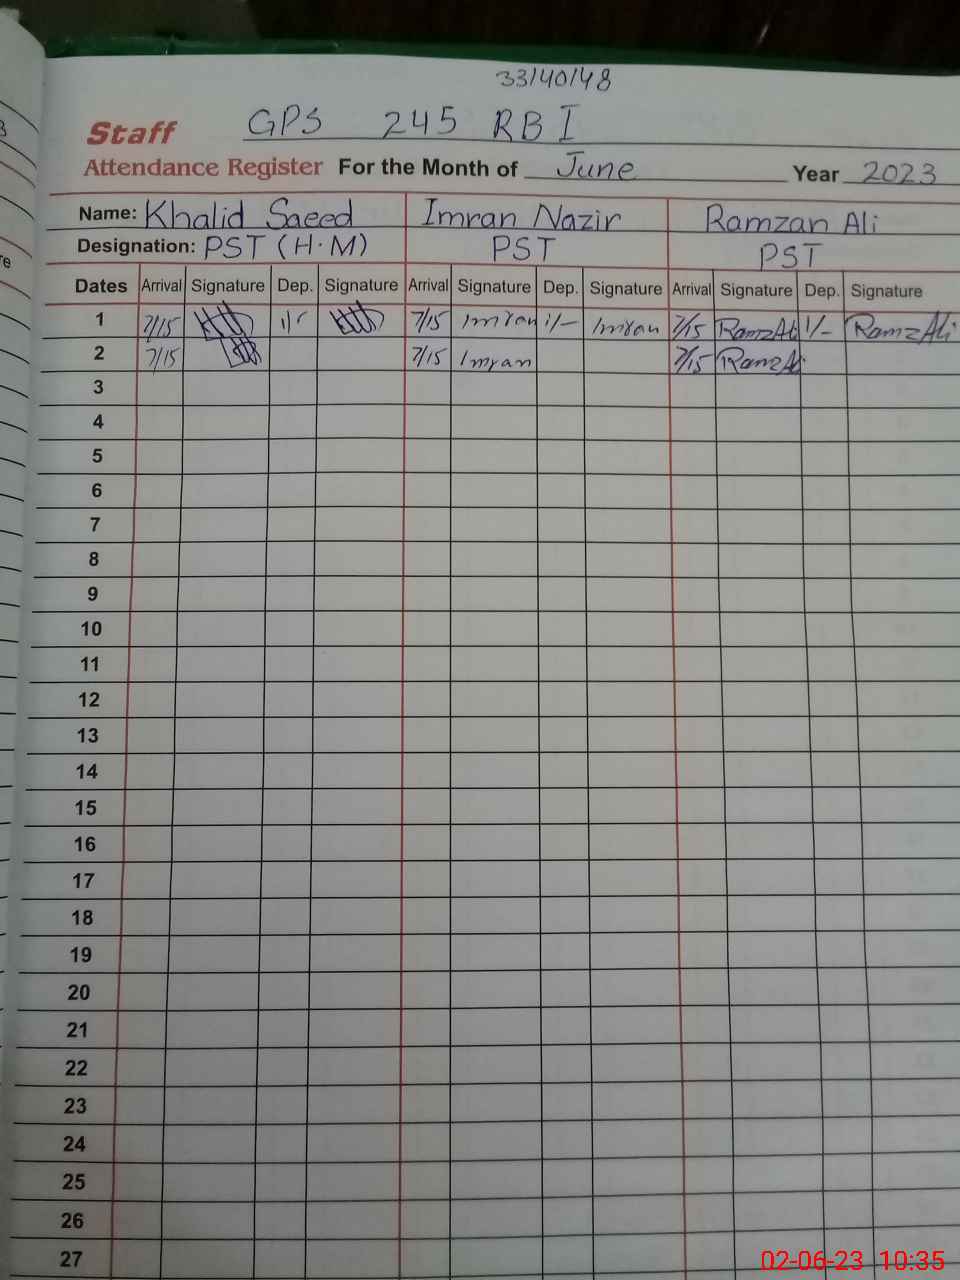 33140148
Staff GPS 245 RB I
Attendance Register For the Month of June Year 2023
Name: Khalid Saeed Imran Nazir Ramzan Ali
Designation: PST (H.M) PST PST
Dates Arrival Signature Dep. Signature Arrival Signature Dep. Signature Arrival Signature Dep. Signature
1 7/15 7/15 Imran 1/- Imran 7/15 RamzAli 1/- RamzAli
2 7/15 7/15 Imran 7/15 RamzAli
3
4
5
6
7
8
9
10
11
12
13
14
15
16
17
18
19
20
21
22
23
24
25
26
27
02-06-23 10:35